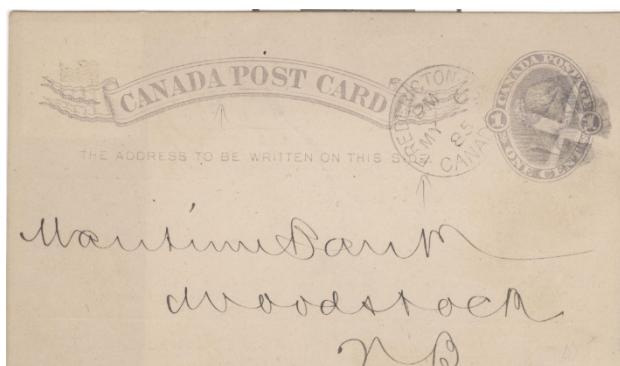 CANADA POST CARD
THE ADDRESS TO BE WRITTEN ON THIS SIDE
FREDERICTON
PM 6
MY
85
CANADA
CANADA POSTAGE
1 1
ONE CENT
Maritime Bank
Woodstock
N B